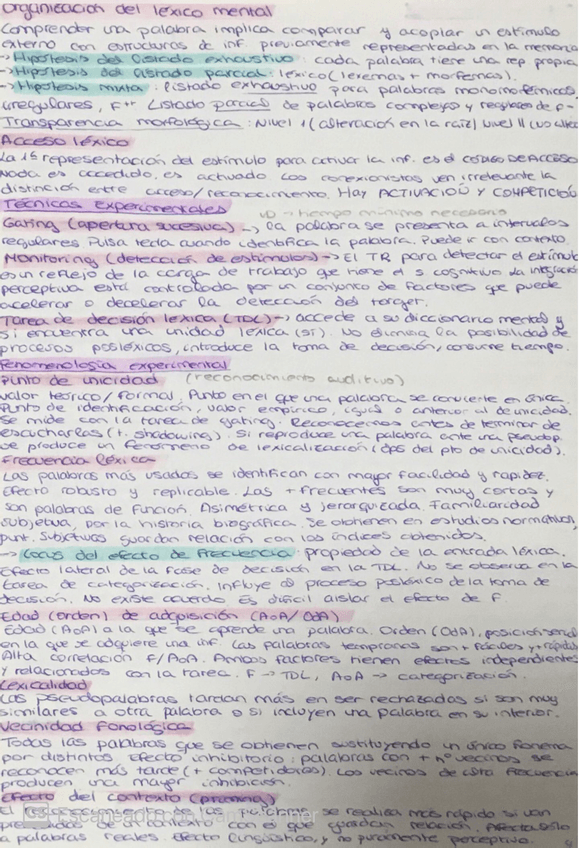 Organización del léxico mental
Comprender una palabra implica comparar y acoplar un estímulo
externo con estructuras de inf. previamente representadas en la memoria
→Hipótesis del listado exhaustivo: cada palabra tiene una rep propia
→Hipótesis del listado parcial: léxico (lexemas + morfemas).
→Hipótesis mixta: listado exhaustivo para palabras monomorfémicas,
irregulares, F++ Listado parcial de palabras complejas y regulares de F-
Transparencia morfológica: Nivel I (alteración en la raíz) Nivel II (no alter
Acceso léxico
La 1ª representación del estímulo para activar la inf. es el CÓDIGO DE ACCESO
Nada es accedido, es activado. Los conexionistas ven irrelevante la
distinción entre acceso/reconocimiento. Hay ACTIVACIÓN y COMPETICIÓN
Técnicas experimentales
VD → tiempo mínimo necesario
Gating (apertura sucesiva) → la palabra se presenta a intervalos
regulares Pulsa tecla cuando identifica la palabra. Puede ir con contexto.
Monitoring (detección de estímulos) → El TR para detectar el estímulo
es un reflejo de la carga de trabajo que tiene el s cognitivo. La integración
perceptiva está controlada por un conjunto de factores que puede
acelerar o decelerar la detección del target.
Tarea de decisión léxica (TDL) → accede a su diccionario mental y
si encuentra una unidad léxica (sí). No elimina la posibilidad de
procesos posléxicos, introduce la toma de decisión, consume tiempo.
Fenomenología experimental
Punto de unicidad (reconocimiento auditivo)
Valor teórico/formal. Punto en el que una palabra se convierte en única.
Punto de identificación, valor empírico, igual o anterior al de unicidad.
Se mide con la tarea de gating. Reconocemos antes de terminar de
escucharlas (t. shadowing). Si reproduce una palabra ante una pseudop
se produce un fenómeno de lexicalización (dps del pto de unicidad).
Frecuencia léxica
Las palabras más usadas se identifican con mayor facilidad y rapidez.
Efecto robusto y replicable. Las + frecuentes son muy cortas y
son palabras de función. Asimétrica y jerarquizada. Familiaridad
subjetiva, por la historia biográfica. Se obtienen en estudios normativos,
punt. subjetivas guardan relación con los índices obtenidos.
→ Locus del efecto de frecuencia: propiedad de la entrada léxica.
Efecto lateral de la fase de decisión en la TDL. No se observa en la
tarea de categorización. Influye al proceso posléxico de la toma de
decisión. No existe acuerdo. Es difícil aislar el efecto de F.
Edad (orden) de adquisición (AoA/OdA)
Edad (AoA) a la que se aprende una palabra. Orden (OdA), posición
en la que se adquiere una inf. Las palabras tempranas son + fáciles y + rápidas
Alta correlación F/AoA. Ambos factores tienen efectos independientes
y relacionados con la tarea. F → TDL, AoA → categorización.
Lexicalidad
Las pseudopalabras tardan más en ser rechazadas si son muy
similares a otra palabra o si incluyen una palabra en su interior.
Vecindad fonológica
Todas las palabras que se obtienen sustituyendo un único fonema
por distintos. Efecto inhibitorio: palabras con + nº vecinos se
reconocen más tarde (+ competidores). Los vecinos de alta frecuencia
producen una mayor inhibición.
Efecto del contexto (priming)
El de las palabras se realiza más rápido si van
de un contexto con el que guardan relación. Afecta sólo
a palabras reales. Efecto lingüístico, y no puramente perceptivo.
CS Escaneado con CamScanner